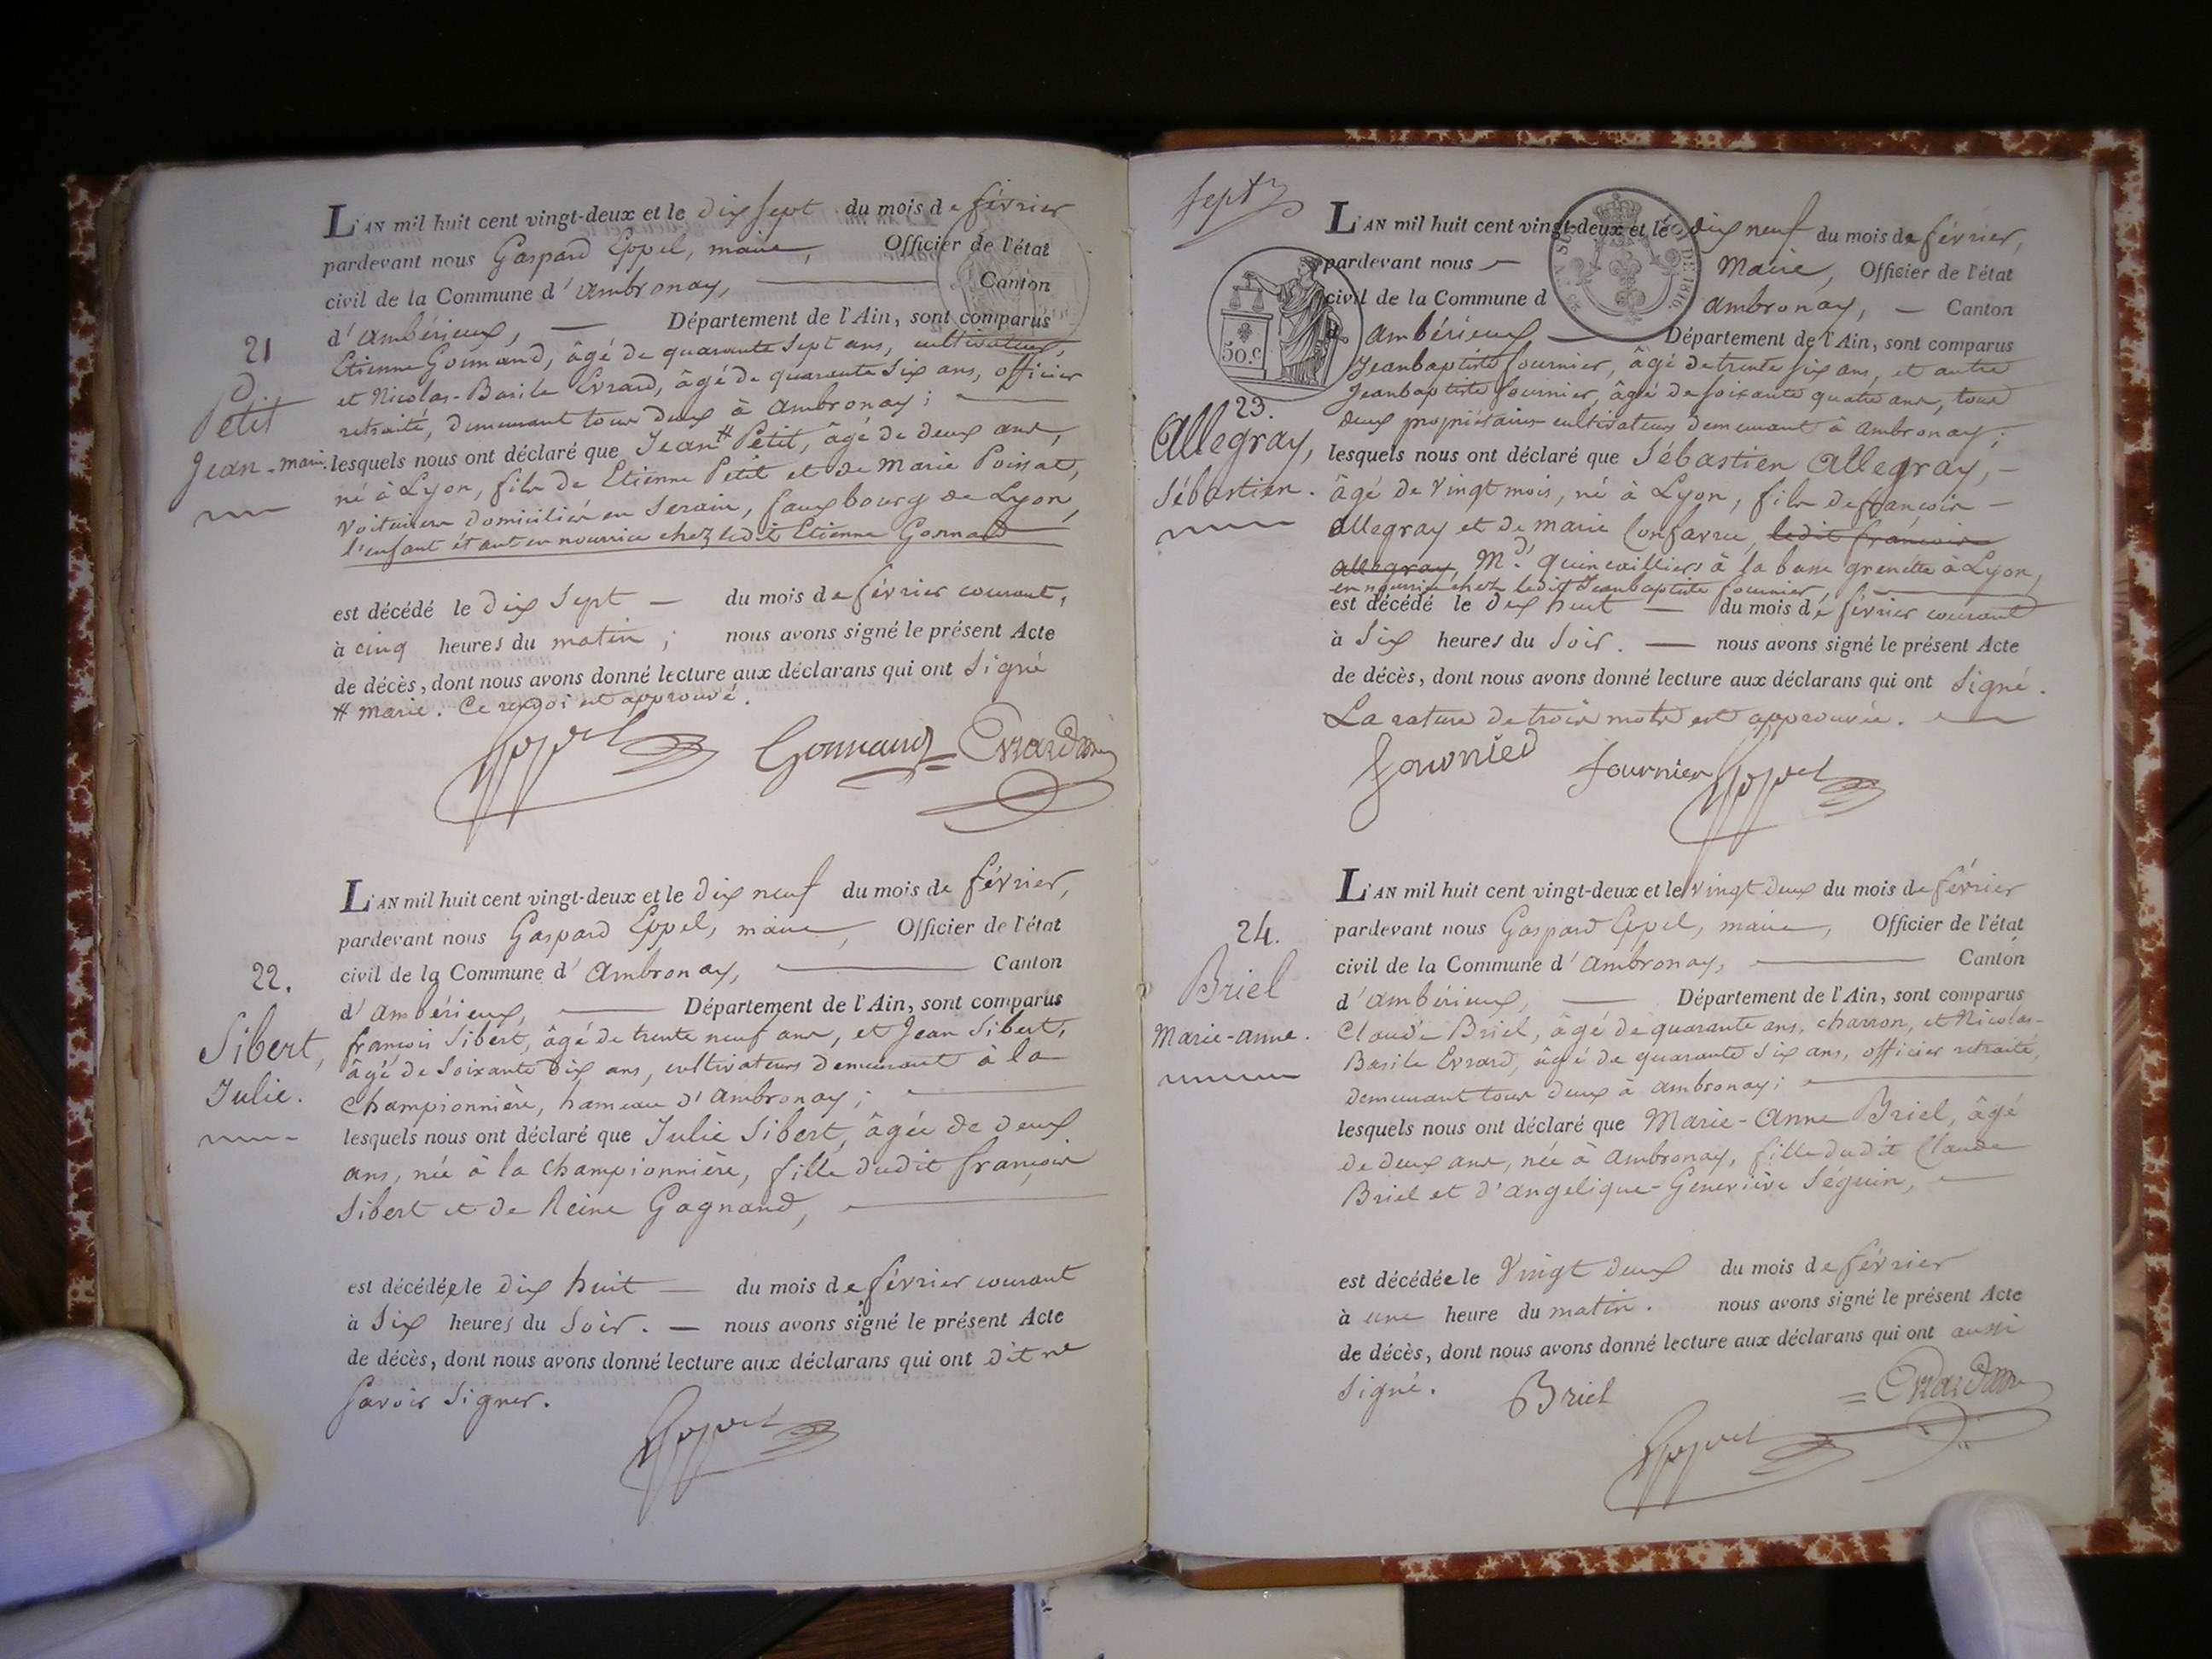 L'AN mil huit cent vingt-deux et le dix sept du mois de février
pardevant nous Gaspard Eppel, maire, Officier de l'état
civil de la Commune d'ambronay, Canton
d'ambérieux, Département de l'Ain, sont comparus
Etienne Gonnand, âgé de quarante sept ans, cultivateur,
et Nicolas-Basile Evrard, âgé de quarante six ans, officier
retraité, demeurant tous deux à ambronay;
21
Petit
Jean-marie.
lesquels nous ont déclaré que Jean # Petit, âgé de deux ans,
né à Lyon, fils de Etienne Petit et de marie Poissat,
voituriers domiciliés en Serain, fauxbourg de Lyon,
l'enfant étant en nourrice chez ledit Etienne Gonnand
est décédé le dix sept du mois de février courant,
à cinq heures du matin; nous avons signé le présent Acte
de décès, dont nous avons donné lecture aux déclarans qui ont signé
# marie. Ce renvoi est approuvé.
Eppel Gonnand Evrard
L'AN mil huit cent vingt-deux et le dix neuf du mois de février,
pardevant nous Gaspard Eppel, maire, Officier de l'état
civil de la Commune d'ambronay, Canton
d'ambérieux, Département de l'Ain, sont comparus
22.
Sibert,
Julie.
françois Sibert, âgé de trente neuf ans, et Jean Sibert,
âgé de soixante dix ans, cultivateurs demeurant à la
Championnière, hameau d'ambronay;
lesquels nous ont déclaré que Julie Sibert, âgée de deux
ans, née à la Championnière, fille dudit françois
Sibert et de Reine Gagnand,
est décédée le dix huit du mois de février courant
à six heures du soir. nous avons signé le présent Acte
de décès, dont nous avons donné lecture aux déclarans qui ont dit ne
savoir signer.
Eppel
sept
L'AN mil huit cent vingt-deux et le dix neuf du mois de février,
pardevant nous Maire, Officier de l'état
civil de la Commune d ambronay, Canton
d ambérieux Département de l'Ain, sont comparus
50.c
Jeanbaptiste fournier, âgé de trente six ans, et autre
Jeanbaptiste fournier, âgé de soixante quatre ans, tous
deux propriétaires cultivateurs demeurant à ambronay;
23.
Allegray,
Sébastien.
lesquels nous ont déclaré que Sébastien Allegray,
âgé de vingt mois, né à Lyon, fils de françois
allegray et de marie Confavru, ledit françois
allegray, M.d quincailliers à la basse grenette à Lyon,
en nourrice chez ledit Jeanbaptiste fournier,
est décédé le dix huit du mois de février courant
à six heures du soir. nous avons signé le présent Acte
de décès, dont nous avons donné lecture aux déclarans qui ont signé.
La rature de trois mots est approuvée.
fournier fournier Eppel
L'AN mil huit cent vingt-deux et le vingt deux du mois de février
pardevant nous Gaspard Eppel, maire, Officier de l'état
civil de la Commune d'ambronay, Canton
d'ambérieux, Département de l'Ain, sont comparus
24.
Briel
Marie-anne.
Claude Briel, âgé de quarante ans, charron, et Nicolas-
Basile Evrard, âgé de quarante six ans, officier retraité,
demeurant tous deux à ambronay;
lesquels nous ont déclaré que Marie-Anne Briel, âgé
de deux ans, née à ambronay, fille dudit Claude
Briel et d'angelique-Geneviève Séguin,
est décédée le vingt deux du mois de février
à une heure du matin. nous avons signé le présent Acte
de décès, dont nous avons donné lecture aux déclarans qui ont aussi
signé.
Briel Evrard
Eppel